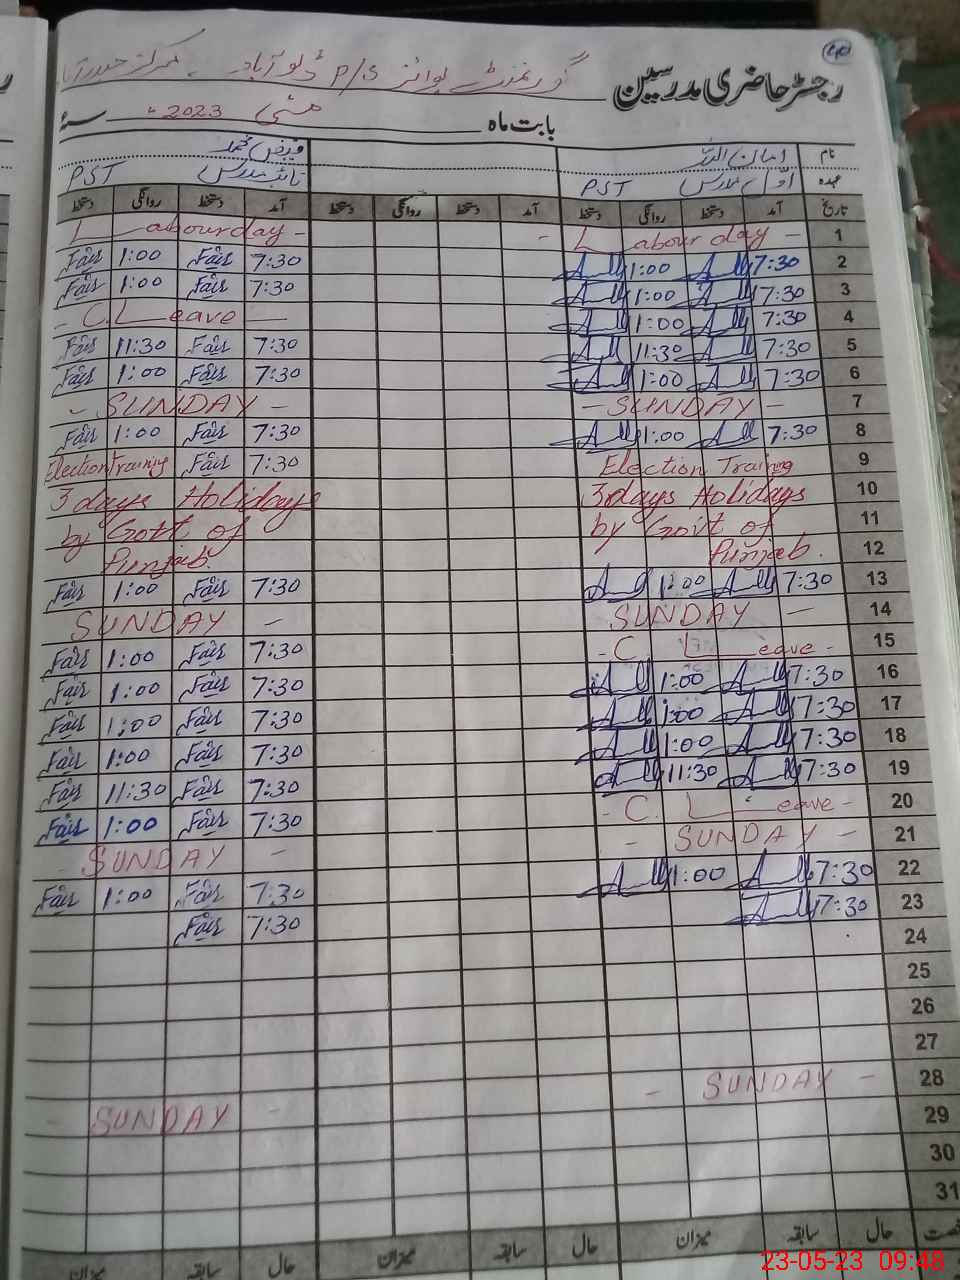 رجسٹر حاضری مدرسین گورنمنٹ بوائز P/S آباد مرکز
بابت ماہ مئی 2023 سنہ
نام امان اللہ فیض محمد
عہدہ اول مدرس PST نائب مدرس PST
تاریخ آمد دستخط روانگی دستخط آمد دستخط روانگی دستخط آمد دستخط روانگی دستخط
1 - Labour day - Labour day -
2 7:30 1:00 7:30 Fair 1:00 Fair
3 7:30 1:00 7:30 Fair 1:00 Fair
4 7:30 1:00 - C. Leave -
5 7:30 11:30 7:30 Fair 11:30 Fair
6 7:30 1:00 7:30 Fair 1:00 Fair
7 - SUNDAY - - SUNDAY -
8 7:30 1:00 7:30 Fair 1:00 Fair
9 Election Traning 7:30 Fair Election Traning
10 3 days Holidays 3 days Holidays
11 by Govt of by Govt of
12 Punjab. Punjab.
13 7:30 1:00 7:30 Fair 1:00 Fair
14 SUNDAY - SUNDAY -
15 - C. Leave - 7:30 Fair 1:00 Fair
16 7:30 1:00 7:30 Fair 1:00 Fair
17 7:30 1:00 7:30 Fair 1:00 Fair
18 7:30 1:00 7:30 Fair 1:00 Fair
19 7:30 11:30 7:30 Fair 11:30 Fair
20 - C. Leave - 7:30 Fair 1:00 Fair
21 - SUNDAY - SUNDAY -
22 7:30 1:00 7:30 Fair 1:00 Fair
23 7:30 7:30 Fair
24
25
26
27
28 - SUNDAY - - SUNDAY -
29
30
31
حال سابقہ میزان حال سابقہ میزان حال سابقہ میزان
23-05-23 09:48